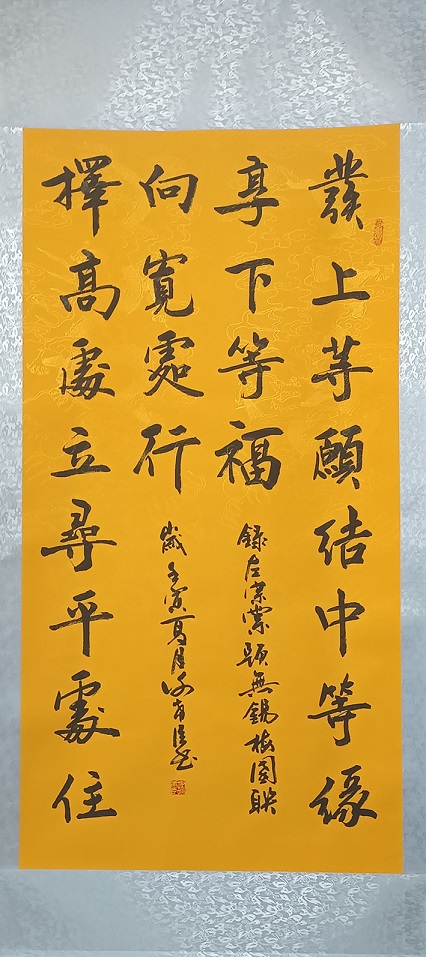 發上等願結中等緣
享下等福
錄左宗棠題無錫梅園聯
擇高處立尋平處住
向寬處行
歲壬寅夏月書